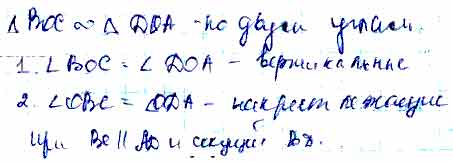 △ BOC ∾ △ DOA - по двум углам.
1. ∠ BOC = ∠ DOA - вертикальные
2. ∠OBC = ∠ODA - накрест лежащие
при BC || AD и секущей BD.